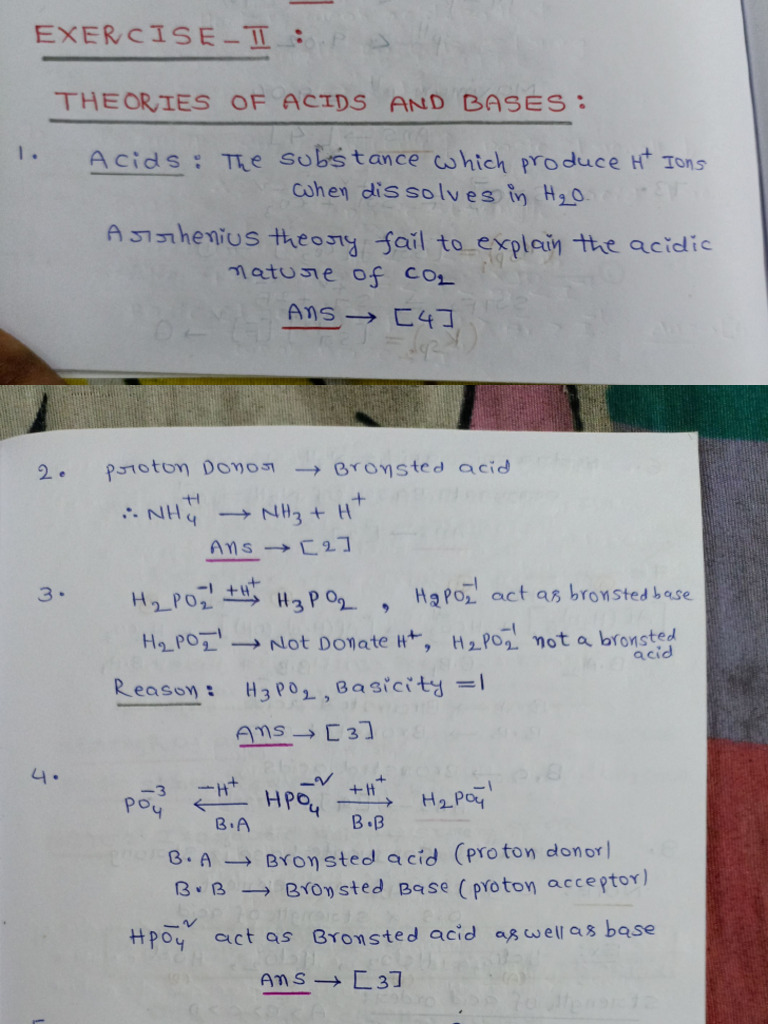 EXERCISE-II :
THEORIES OF ACIDS AND BASES :
1. Acids : The substance which produce H⁺ Ions
when dissolves in H₂O.
Arrhenius theory fail to explain the acidic
nature of CO₂
Ans → [4]
2. Proton Donor → Bronsted acid
∴ NH₄⁺¹ → NH₃ + H⁺
Ans → [2]
3. H₂PO₂⁻¹ +H⁺→ H₃PO₂ , H₂PO₂⁻¹ act as bronsted base
H₂PO₂⁻¹ → Not Donate H⁺, H₂PO₂⁻¹ not a bronsted
acid
Reason : H₃PO₂, Basicity = 1
Ans → [3]
4. PO₄⁻³ ←–H⁺ B.A HPO₄⁻² +H⁺→ B.B H₂PO₄⁻¹
B.A → Bronsted acid (proton donor)
B.B → Bronsted Base (proton acceptor)
HPO₄⁻² act as Bronsted acid as well as base
Ans → [3]